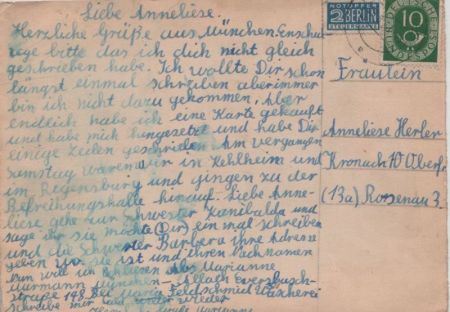 Liebe Anneliese.
Herzliche Grüße aus München. Enschu
ldige bitte das ich dich nicht gleich
geschrieben habe. Ich wollte Dir schon
längst einmal schreiben aber immer
bin ich nicht dazu gekommen. Aber
endlich habe ich eine Karte gekauft
und habe mich hingesetzt und habe Dir
einige Zeilen geschrieben. Am vergangen
Samstag waren wir in Kehlheim und
in Regensburg und gingen zu der
Befreihungshalle hinauf. Liebe Anne-
liese gehe zur Schwester und
sage ihr sie möchte Dir einmal schreiben
und die Schwester Barbara ihre Adresse
geben wo sie ist und ihren Nachnamen
Nun will ich schliesen Marianne
München - Allach
straße 148 Bei Maria Feldschmid Wäscherei
Schreibe mir bald wieder
Marianne
NOTOPFER
2 BERLIN
STEUERMARKE
DEUTSCHE
10
Fräulein
Anneliese Herler
Kronach 10 Oberfr.
(13a) Rosenau 3.